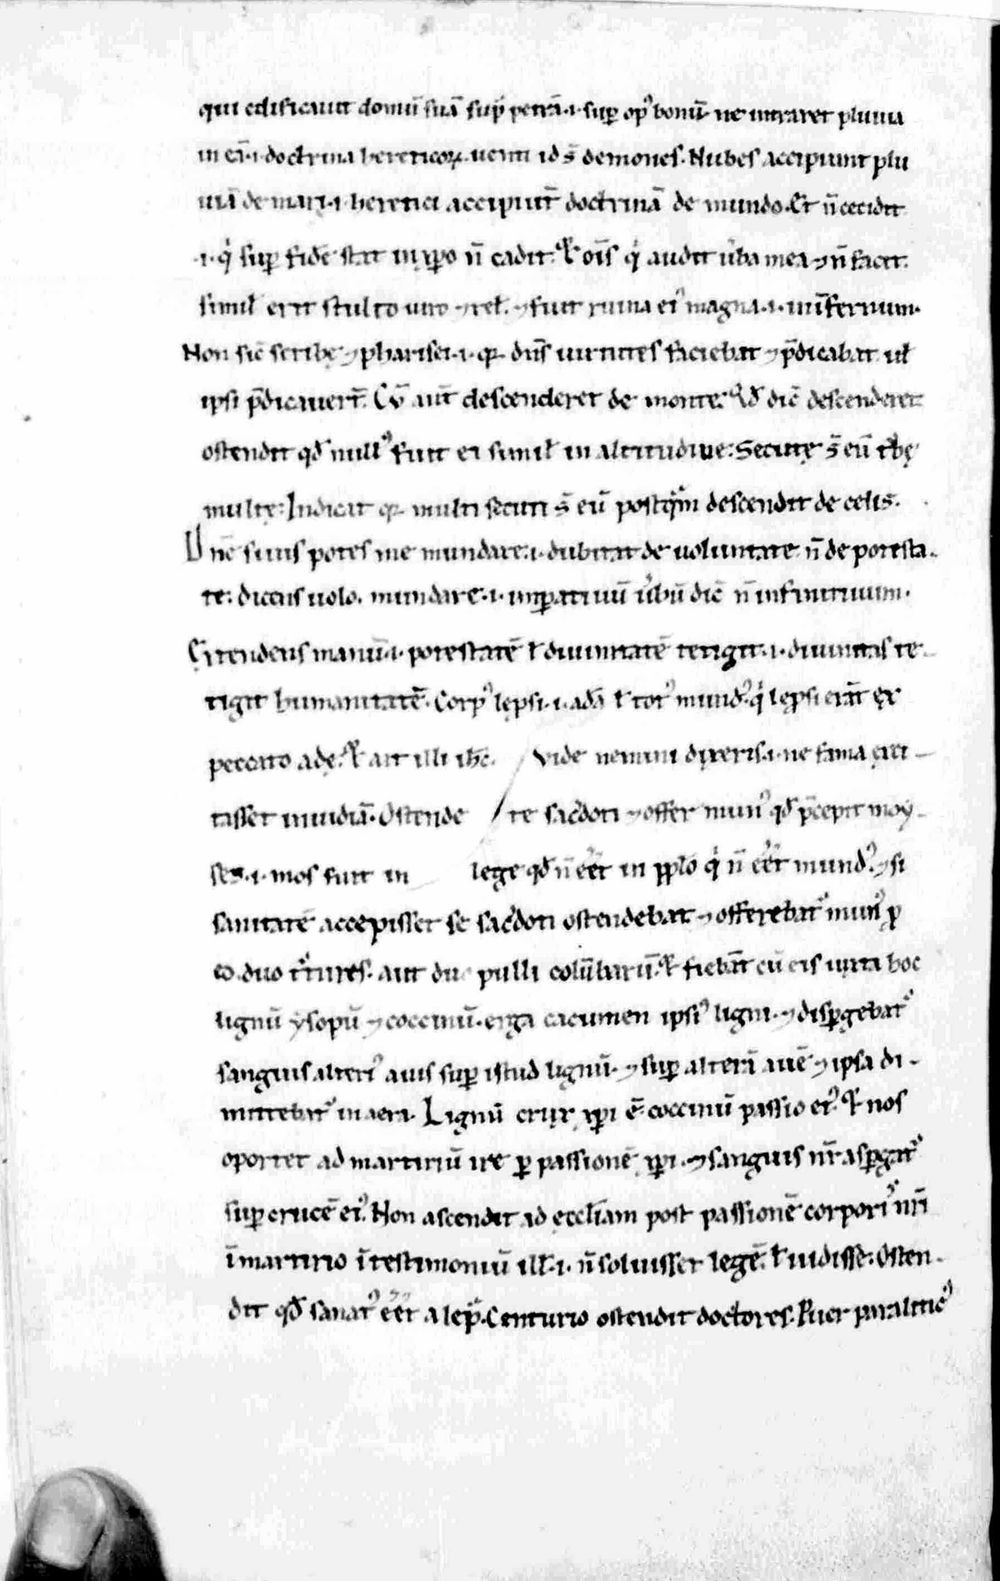 qui edificauit domū suā sup̄ petrā ·i· sup̱ op᾿ bonū· ne intraret pluuia
in eā ·i· doctrina hereticoꝝ· uenti id s̄ demones· Nubes accipiunt plu
uiā de mari ·i· heretici accipiūt doctrinā de mundo· Et n̄ cecidit
·i· qͥ sup̱ fidē stat in xp̄o n̄ cadit· ⁊ oīs qͥ audit ůba mea ⁊ n̄ facit·
simił erit stulto uiro ⁊ reł· ⁊ fuit ruina ei᾿ magna ·i· in īfernum·
Non sic̄ scribę ⁊ pharisei ·i· q̄ dn̄s uirtutes faciebat ⁊ p̄dicabat uł
ipsi p̄dicauer̄t· Cū aut̄ descenderet de monte· Qđ dic̄ descenderet
ostendit qđ null᾿ fuit ei simił in altitudine· Secutę s̄ eū t᾿bę
multę· Indicat q̄ multi secuti s̄ eū postqͣm descendit de celis·
Dn̄e si uis potes me mundare ·i· dubitat de uoluntate n̄ de potesta-
te· dicens uolo· mundare ·i· inꝑatiuū ůbū dic̄ n̄ infinitiuum·
Extendens manū ·i· potestatē ł diuinitatē tetigit ·i· diuinitas te-
tigit humanitatē· Corp᾿ lepsi ·i· adā ł tot᾿ mund᾿ qͥ lepsi erāt ex
peccato adę· ⁊ ait illi ih̄c· Vide nemini dixeris ·i· ne fama exci-
tasset inuidiā· Ostende te sac̄doti ⁊ offer mun᾿ qđ p̄cepit moy-
ses ·i· mos fuit in lege qđ n̄ eēt in pplo qͥ n̄ eēt mund᾿ ⁊ si
sanitatē accepisset se sac̄doti ostendebat ⁊ offerebat᾿ mun᾿ ꝓ
eo duo t᾿tures· aut duo pulli colūbarū· ⁊ fiebāt cū eis iuxta hoc
lignū ysopū ⁊ coccinū· erga cacumen ipsi᾿ ligni· ⁊ disꝑgebat᾿
sanguis alteri᾿ auis sup̱ istud lignū· ⁊ sup̱ alterā auē ⁊ ipsa di-
mittebat᾿ in aera· Lignū crux xp̄i ē· coccinū passio ei᾿· ⁊ nos
oportet ad martiriū ire ꝑ passionē xp̄i· ⁊ sanguis nr̄ asꝑgat᾿
sup̱ crucē ei᾿· Non ascendit ad ecclīam post passionē corpori᾿ nr̄i
ī martirio ī testimoniū ill̄ ·i· n̄ soluisset legē· ł uidisse· Osten-
dit qđ sanat᾿ eēt a lep̄· Centurio ostendit doctores· Puer paralitic᾿